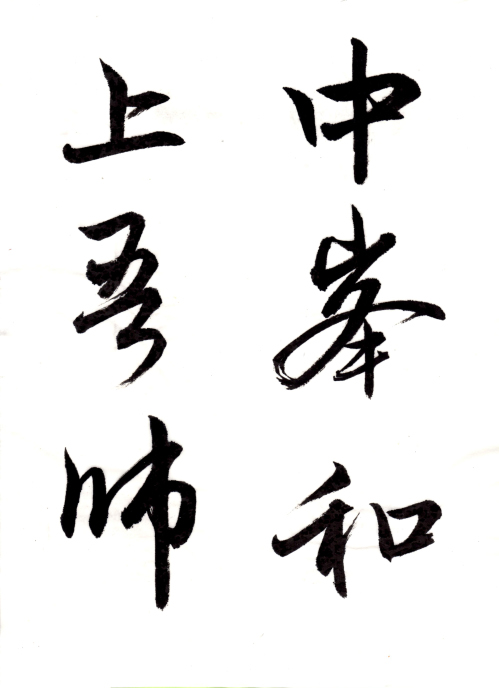 中峯和
上吾師